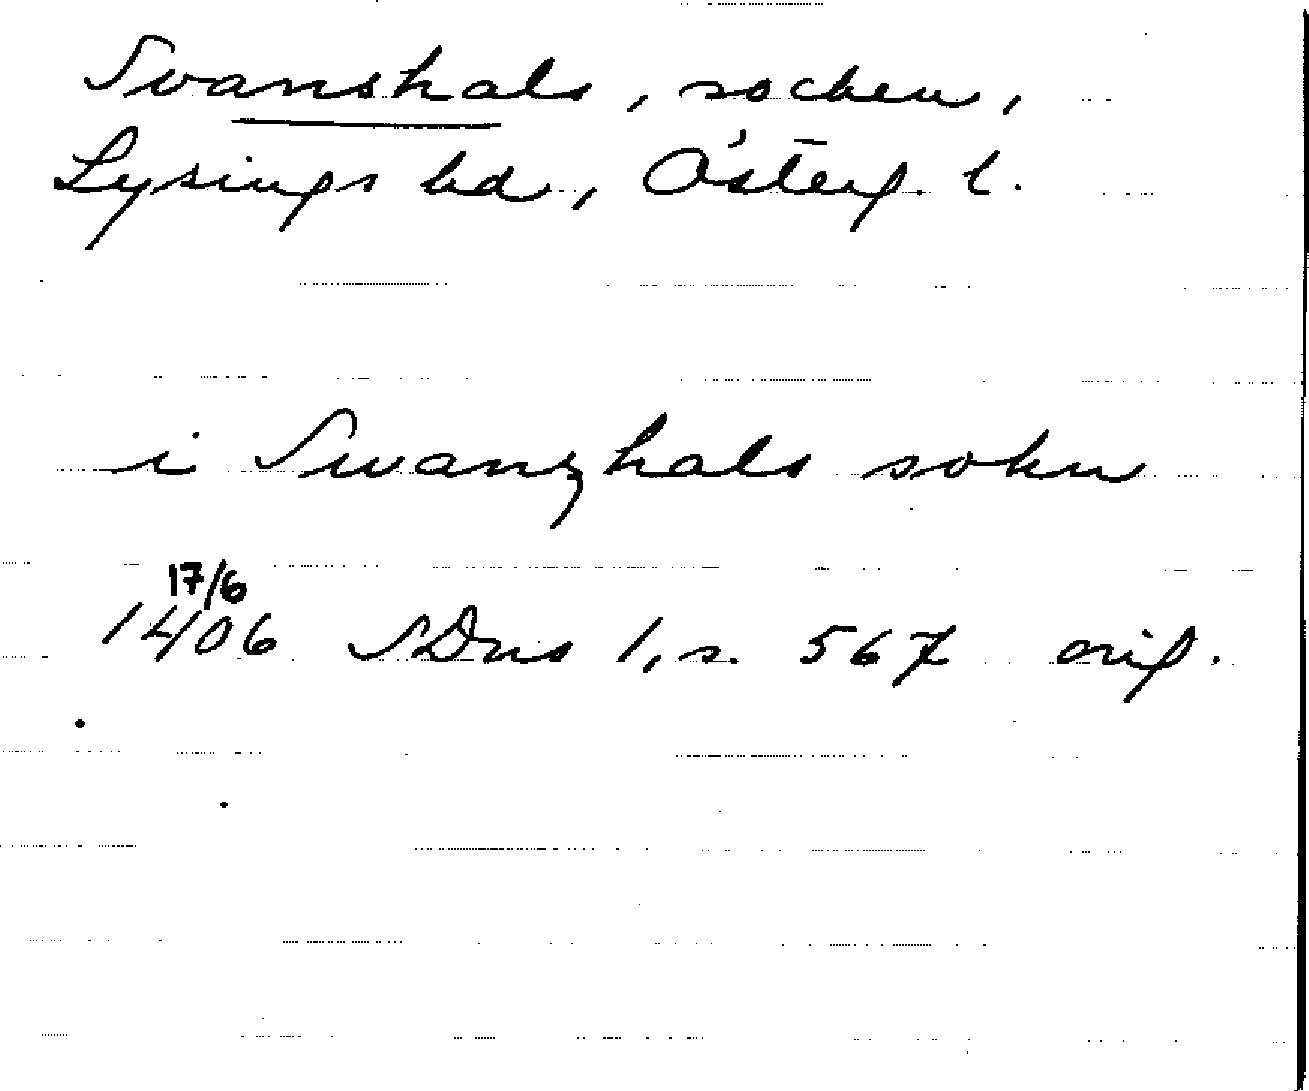 Svanshals, socken,
Lysings hd, Österg. l.
i Swanzhals sokn
17/6
1406 SDns 1, s. 567 orig.